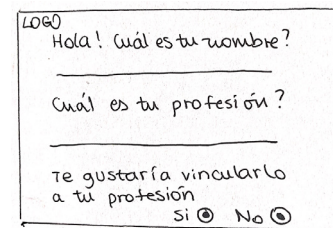 LOGO
Hola! Cuál es tu nombre?
Cuál es tu profesión?
Te gustaría vincularlo
a tu profesión
Si No